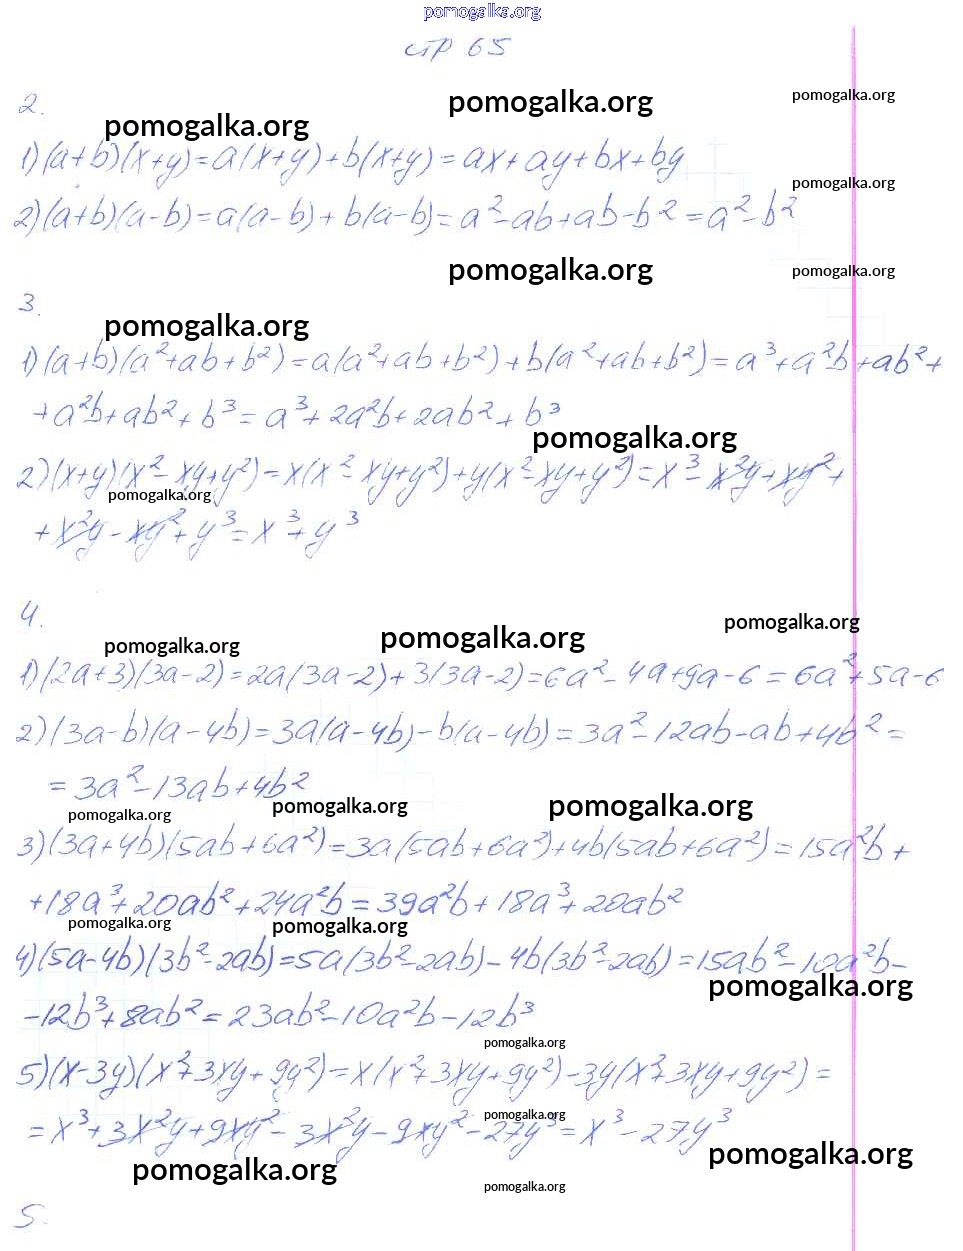 pomogalka.org
стр 65
2.
pomogalka.org pomogalka.org pomogalka.org
1) (a+b)(x+y)=a(x+y)+b(x+y)=ax+ay+bx+by
pomogalka.org
2) (a+b)(a-b)=a(a-b)+b(a-b)=a²-ab+ab-b²=a²-b²
pomogalka.org pomogalka.org
3.
pomogalka.org
1) (a+b)(a²+ab+b²)=a(a²+ab+b²)+b(a²+ab+b²)=a³+a²b+ab²+
+a²b+ab²+b³=a³+2a²b+2ab²+b³
pomogalka.org
2) (x+y)(x²-xy+y²)=x(x²-xy+y²)+y(x²-xy+y²)=x³-x²y+xy²+
pomogalka.org
+x²y-xy²+y³=x³+y³
4.
pomogalka.org pomogalka.org pomogalka.org
1) (2a+3)(3a-2)=2a(3a-2)+3(3a-2)=6a²-4a+9a-6=6a²+5a-6
2) (3a-b)(a-4b)=3a(a-4b)-b(a-4b)=3a²-12ab-ab+4b²=
=3a²-13ab+4b²
pomogalka.org pomogalka.org pomogalka.org
3) (3a+4b)(5ab+6a²)=3a(5ab+6a²)+4b(5ab+6a²)=15a²b+
+18a³+20ab²+24a²b=39a²b+18a³+20ab²
pomogalka.org pomogalka.org
4) (5a-4b)(3b²-2ab)=5a(3b²-2ab)-4b(3b²-2ab)=15ab²-10a²b-
pomogalka.org
-12b³+8ab²=23ab²-10a²b-12b³
pomogalka.org
5) (x-3y)(x²+3xy+9y²)=x(x²+3xy+9y²)-3y(x²+3xy+9y²)=
pomogalka.org
=x³+3x²y+9xy²-3x²y-9xy²-27y³=x³-27y³
pomogalka.org pomogalka.org
pomogalka.org
5.